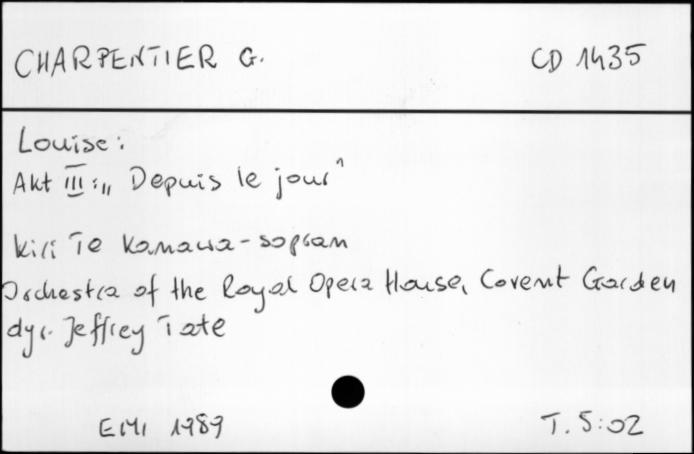 CHARPENTIER G. CD 1435
Louise:
Akt III: „Depuis le jour"
Kiri Te Kanawa - sopran
Orchestra of the Royal Opera House, Covent Garden
dyr. Jeffrey Tate
EMI 1989 T. 5:02